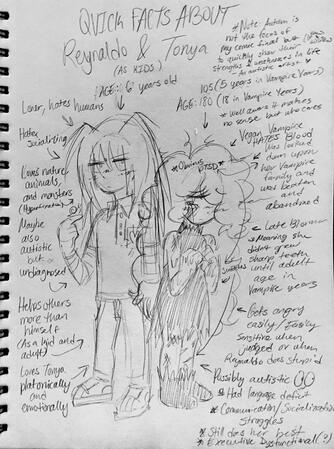 QUICK FACTS ABOUT
Reynaldo & Tonya
(AS KIDS)
*Note: Autism is
not the focus of
my comic final but
to quickly show their
strengths & weaknesses in life
- An autistic artist
AGE: 6 years old
105 (5 years in Vampire Years)
AGE: 180 (18 in Vampire Years)
*Well aware it makes
no sense but who cares
Loner, hates
humans
Hates
Socializing
Loves nature,
animals,
and monsters
Maybe
also
autistic but
undiagnosed
Helps others
more than
himself
(As a kid and
adult)
Loves Tonya
platonically
and
emotionally
*Obvious PTSD*
Vegan Vampire
HATES Blood
Was looked
down upon
her Vampire
family and
was beaten
and
abandoned
Late Bloomer
Meaning she
didn't grew
sharp teeth
until adult
age in
Vampire years
Gets angry
easily/Easily
Sensitive when
judged or when
Reynaldo does stupid
Possibly autistic
*Had language deficit
*Communication/Socialization
Struggles
*Still does her best
*Executive Dysfunctional(?)